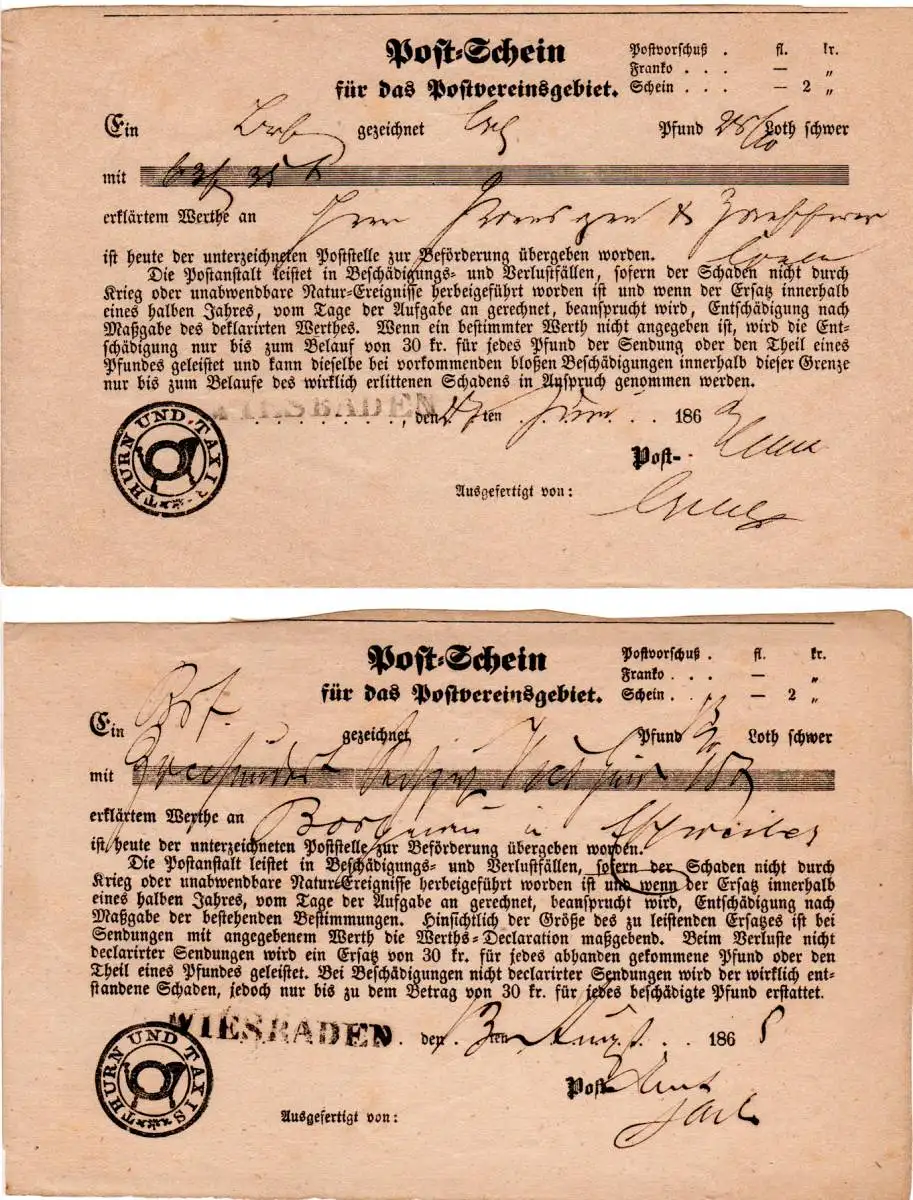 Post-Schein
für das Postvereinsgebiet.
Postvorschuß . fl. kr.
Franko . . . — „
Schein . . . — 2 „
Ein gezeichnet Pfund Loth schwer
mit
erklärtem Werthe an Herrn &
ist heute der unterzeichneten Poststelle zur Beförderung übergeben worden.
Die Postanstalt leistet in Beschädigungs- und Verlustfällen, sofern der Schaden nicht durch
Krieg oder unabwendbare Natur-Ereignisse herbeigeführt worden ist und wenn der Ersatz innerhalb
eines halben Jahres, vom Tage der Aufgabe an gerechnet, beansprucht wird, Entschädigung nach
Maßgabe des deklarirten Werthes. Wenn ein bestimmter Werth nicht angegeben ist, wird die Ent-
schädigung nur bis zum Belauf von 30 kr. für jedes Pfund der Sendung oder den Theil eines
Pfundes geleistet und kann dieselbe bei vorkommenden bloßen Beschädigungen innerhalb dieser Grenze
nur bis zum Belaufe des wirklich erlittenen Schadens in Anspruch genommen werden.
WIESBADEN , den ten 186
THURN UND TAXIS
Post-
Ausgefertigt von:
Post-Schein
für das Postvereinsgebiet.
Postvorschuß . fl. kr.
Franko . . . — „
Schein . . . — 2 „
Ein gezeichnet Pfund Loth schwer
mit
erklärtem Werthe an Eschweiler
ist heute der unterzeichneten Poststelle zur Beförderung übergeben worden.
Die Postanstalt leistet in Beschädigungs- und Verlustfällen, sofern der Schaden nicht durch
Krieg oder unabwendbare Natur-Ereignisse herbeigeführt worden ist und wenn der Ersatz innerhalb
eines halben Jahres, vom Tage der Aufgabe an gerechnet, beansprucht wird, Entschädigung nach
Maßgabe der bestehenden Bestimmungen. Hinsichtlich der Größe des zu leistenden Ersatzes ist bei
Sendungen mit angegebenem Werth die Werths-Declaration maßgebend. Beim Verluste nicht
declarirter Sendungen wird ein Ersatz von 30 kr. für jedes abhanden gekommene Pfund oder den
Theil eines Pfundes geleistet. Bei Beschädigungen nicht declarirter Sendungen wird der wirklich ent-
standene Schaden, jedoch nur bis zu dem Betrag von 30 kr. für jedes beschädigte Pfund erstattet.
WIESBADEN . den 13ten August 1865
THURN UND TAXIS
Post- Amt
Ausgefertigt von: